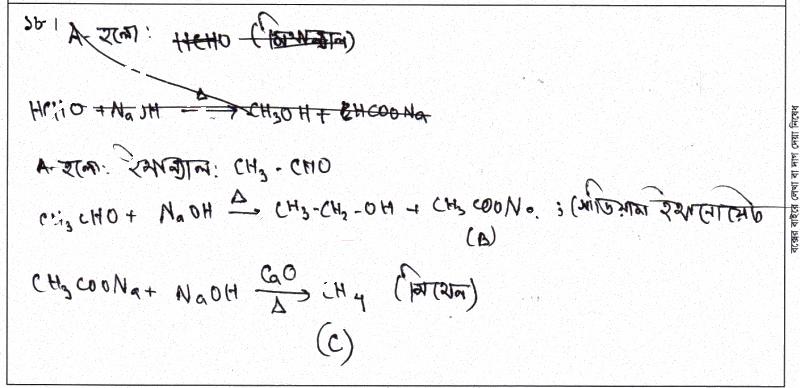 ১৮। A- হলো: HCHO (মিথান্যাল)
HCHO + NaOH →Δ CH3OH + HCOONa
A- হলো: ইথান্যাল: CH3 - CHO
CH3CHO + NaOH →Δ CH3-CH2-OH + CH3COONa ; সোডিয়াম ইথানোয়েট
(B)
CH3COONa + NaOH CaO→Δ CH4 (মিথেন)
(C)
বক্সের বাইরে লেখা বা দাগ দেয়া নিষেধ